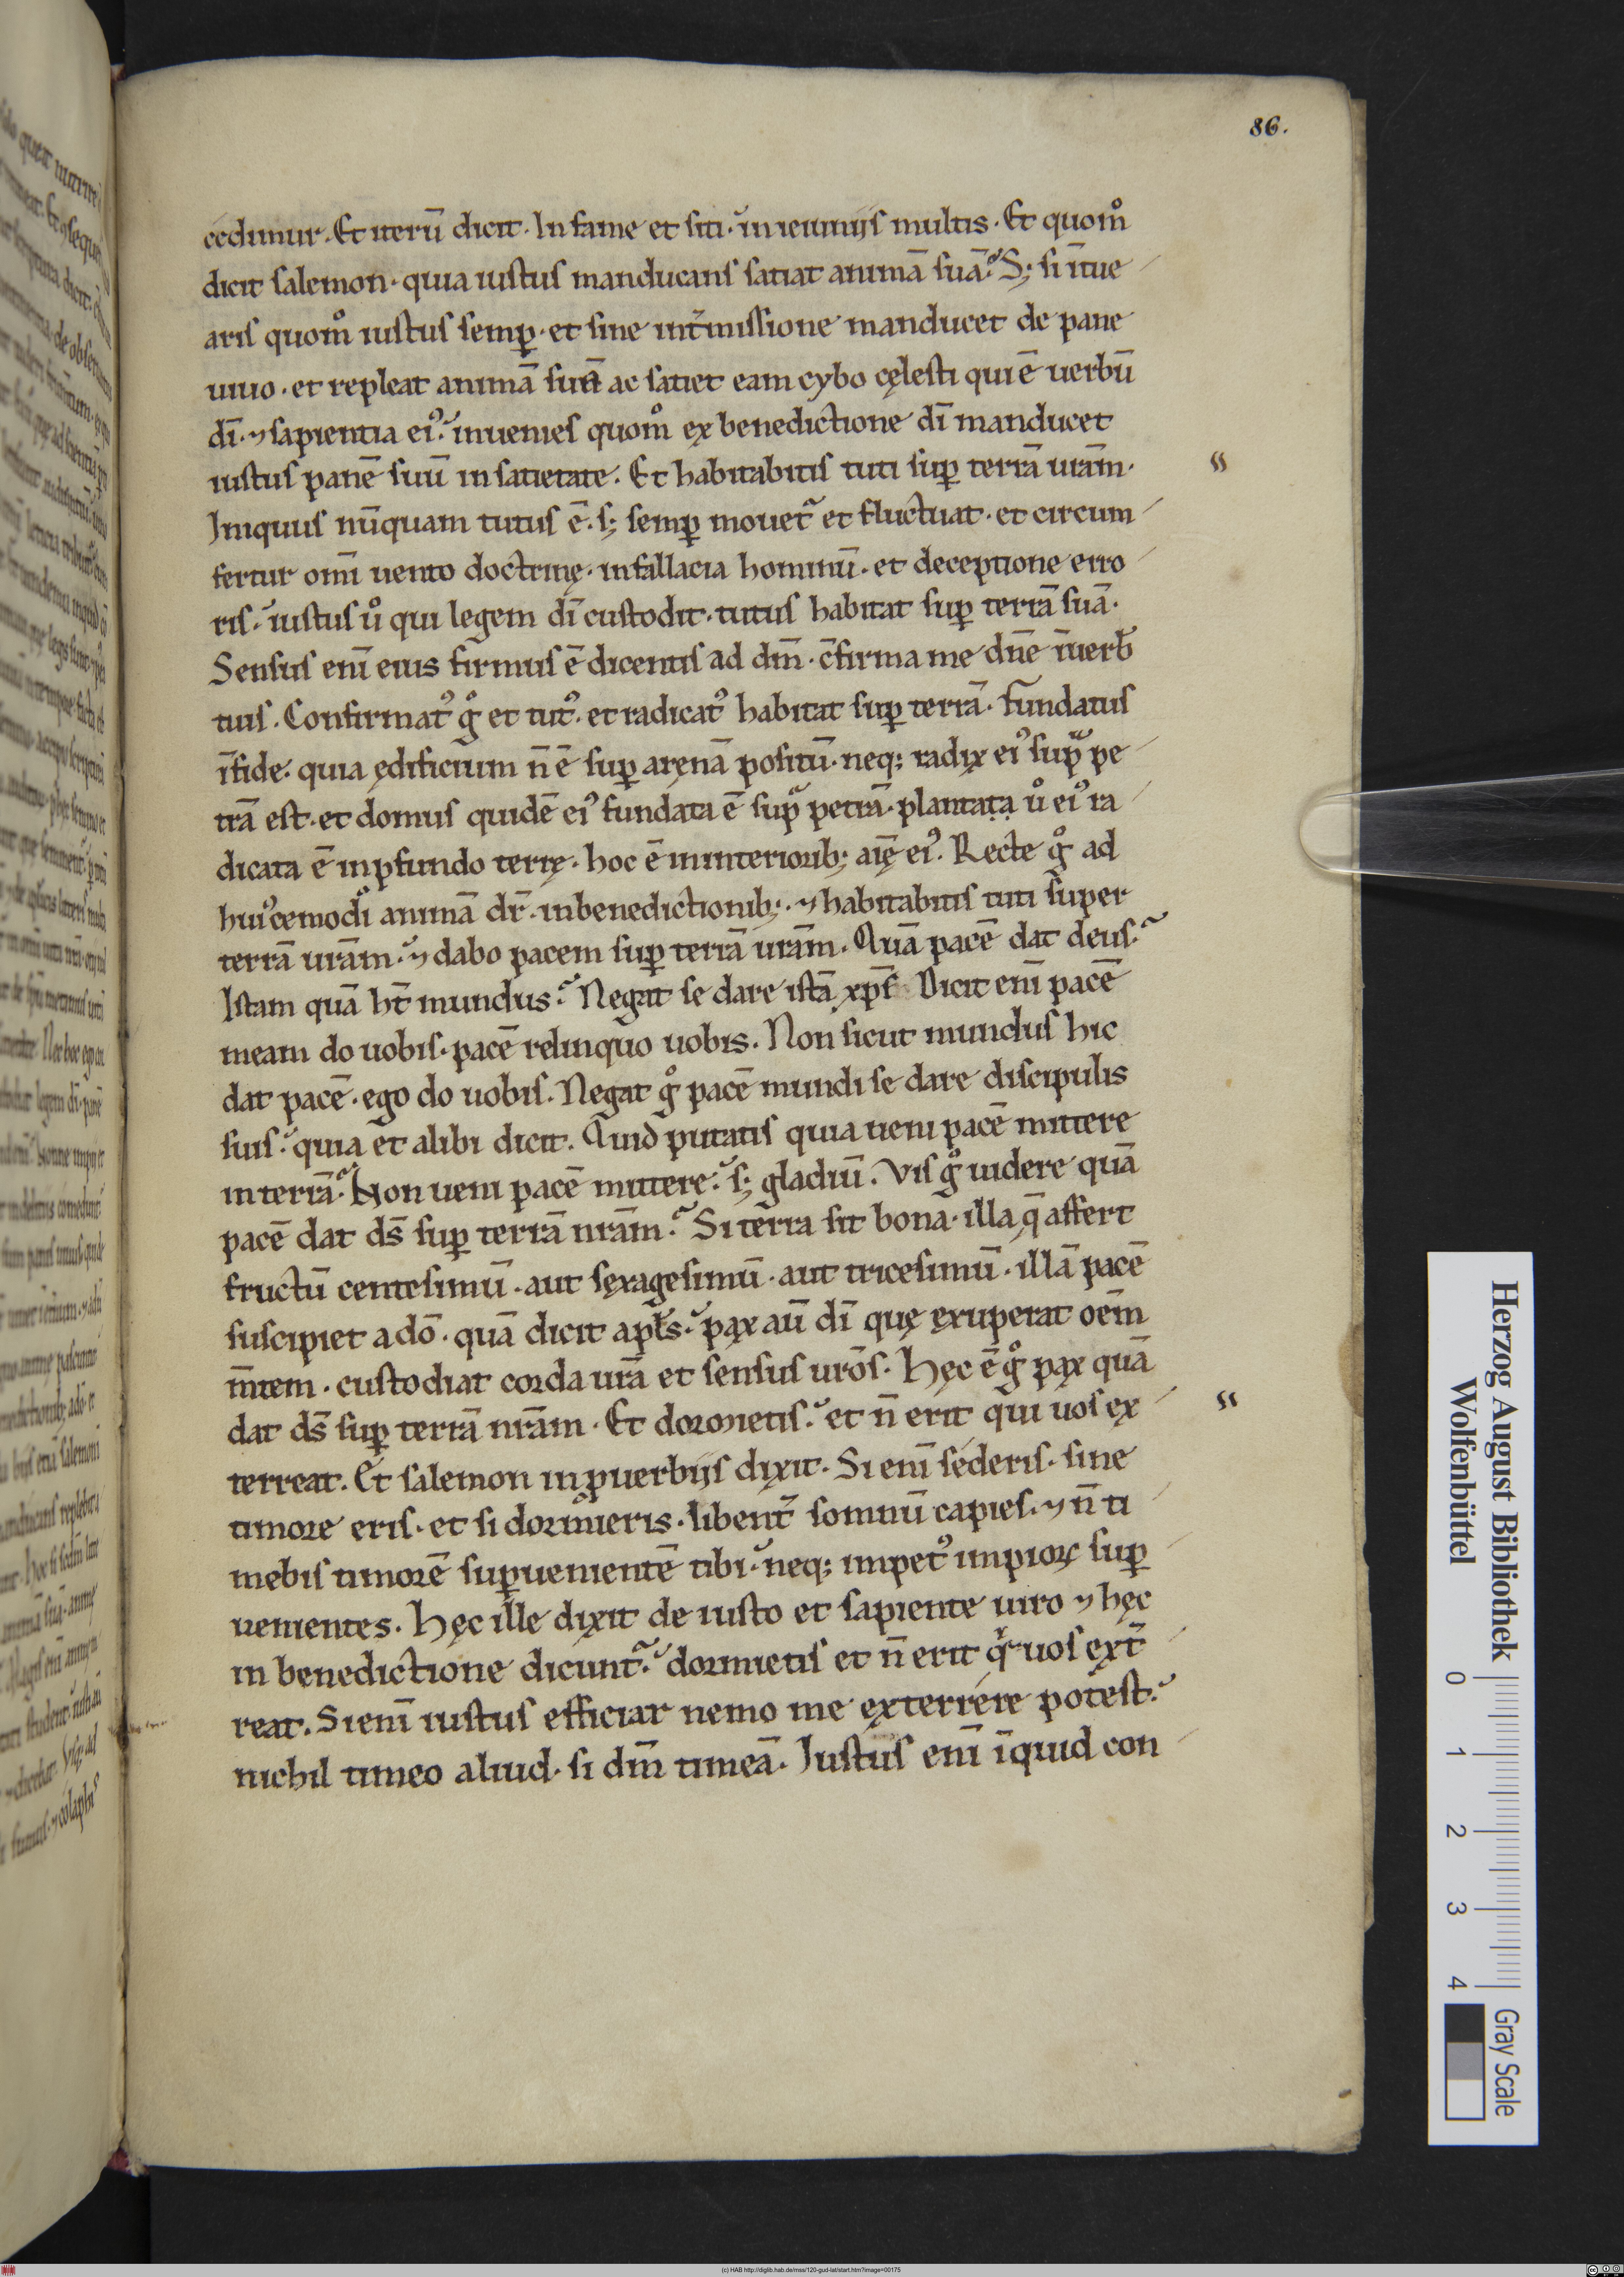 86.
cedimur. Et iterū dicit. In fame et siti. in ieiuniis multis. Et quomͦ
dicit salemon. quia iustus manducans satiat animā suā. S; si ītue
aris quomͦ iustus semꝑ. et sine int̄missione manducet de pane
uiuo. et repleat animā suā ac satiet eam cybo cęlesti qui ē uerbū
dī. ⁊ sapientia ei᾽. inuenies quomͦ ex benedictione dī manducet
iustus panē suū in satietate. Et habitabitis tuti suꝑ terrā urām.
Iniquus nūquam tutus ē. s; semꝑ mouet᷑ et fluctuat. et circum
fertur omī uento doctrinę. in fallacia hominū. et deceptione erro
ris. iustus uͦ qui legem dī custodit. tutus habitat suꝑ terrā suā.
Sensus enī eius firmus ē dicentis ad dm̄. c̄firma me dn̄e ī uerb̄
tuis. Confirmat᾽ gͦ et tut᾽. et radicat᾽ habitat suꝑ terrā. fundatus
ī fide. quia ędificium n̄ ē suꝑ arenā positū. neq; radix ei᾽ supͣ pe
trā est. et domus quidē ei᾽ fundata ē supͣ petrā. plantata uͦ ei᾽ ra
dicata ē in ꝓfundo terrę. hoc ē in interiorib; aīę ei᾽. Recte gͦ ad
hui᾽cemodi animā dr̄. in benedictionib;. ⁊ habitabitis tuti super
terrā urām. ⁊ dabo pacem suꝑ terrā urām. Quā pacē dat deus.
Istam quā ht̄ mundus. Negat se dare istā xp̄s Dicit enī pacē
meam do uobis. pacē relinquo uobis. Non sicut mundus hic
dat pacē. ego do uobis. Negat gͦ pacē mundi se dare discipulis
suis. quia et alibi dicit. Quid putatis quia ueni pacē mittere
in terrā. Non ueni pacē mittere. s; gladiū. Vis gͦ uidere quā
pacē dat ds̄ suꝑ terrā nrām. Si terra sit bona. illa q̄ affert
fructū centesimū. aut sexagesimū. aut tricesimū. illā pacē
suscipiet a dō. quā dicit apłs. pax aū dī quę exuperat oēm
m̄tem. custodiat corda urā et sensus urōs. Hęc ē gͦ pax quā
dat ds̄ suꝑ terrā nrām. Et dormietis. et n̄ erit qui uos ex
terreat. Et salemon in ꝓuerbiis dixit. Si enī sederis. sine
timore eris. et si dormieris. libent̄ somnū capies. ⁊ n̄ ti
mebis timorē suꝑuenientē tibi. neq; impet᾽ impioꝝ suꝑ
uenientes. Hęc ille dixit de iusto et sapiente uiro ⁊ hęc
in benedictione dicunt᷑. dormietis et n̄ erit qͥ uos ext̄
reat. Si enī iustus efficiar nemo me exterrere potest.
nichil timeo aliud. si dm̄ timeā. Iustus enī īquid con
Herzog August Bibliothek
Wolfenbüttel
0 1 2 3 4
Gray Scale
(c) HAB http://diglib.hab.de/mss/120-gud-lat/start.htm?image=00175